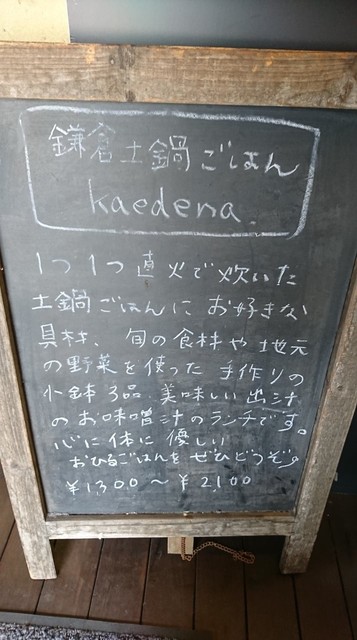 鎌倉土鍋ごはん
kaedena
1つ1つ直火で炊いた
土鍋ごはんにお好きな
具材、旬の食材や地元
の野菜を使った手作りの
小鉢3品、美味しい出汁
のお味噌汁のランチです。
心に体に優しい
おひるごはんを ぜひどうぞ♪
¥1,300~¥2,100